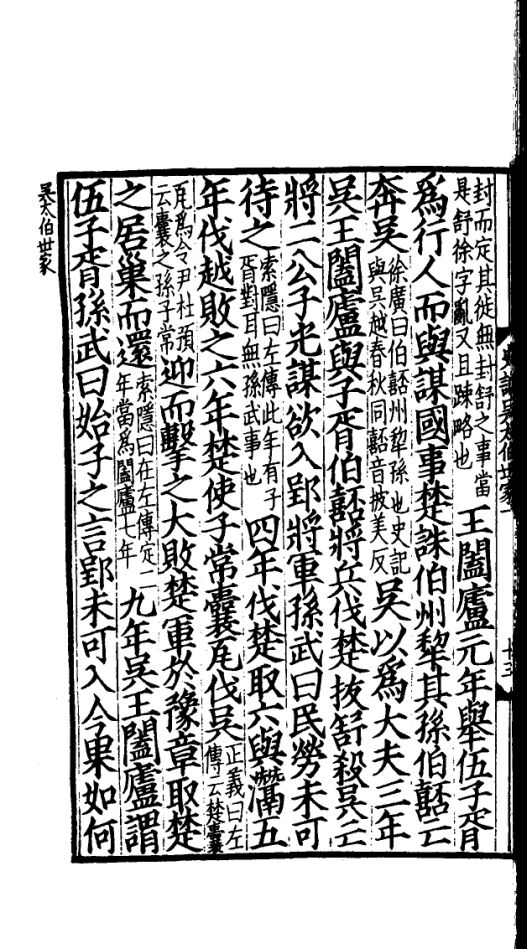 封而定其徙無封舒之事當
是舒徐字亂又且疎略也
王闔廬元年舉伍子胥
爲行人而與謀國事楚誅伯州犂其孫伯嚭亡
奔吳
徐廣曰伯嚭州犂孫也史記
與吳越春秋同嚭音披美反
吳以爲大夫三年
吳王闔廬與子胥伯嚭將兵伐楚拔舒殺吳亡
將二公子光謀欲入郢將軍孫武曰民勞未可
待之
索隱曰左傳此年有子
胥對耳無孫武事也
四年伐楚取六與灊五
年伐越敗之六年楚使子常囊瓦伐吳
正義曰左
傳云楚囊
瓦爲令尹杜預
云囊之孫子常
迎而擊之大敗楚軍於豫章取楚
之居巢而還
索隱曰在左傳定二
年當爲闔廬七年
九年吳王闔廬謂
伍子胥孫武曰始子之言郢未可入今果如何
吳太伯世家